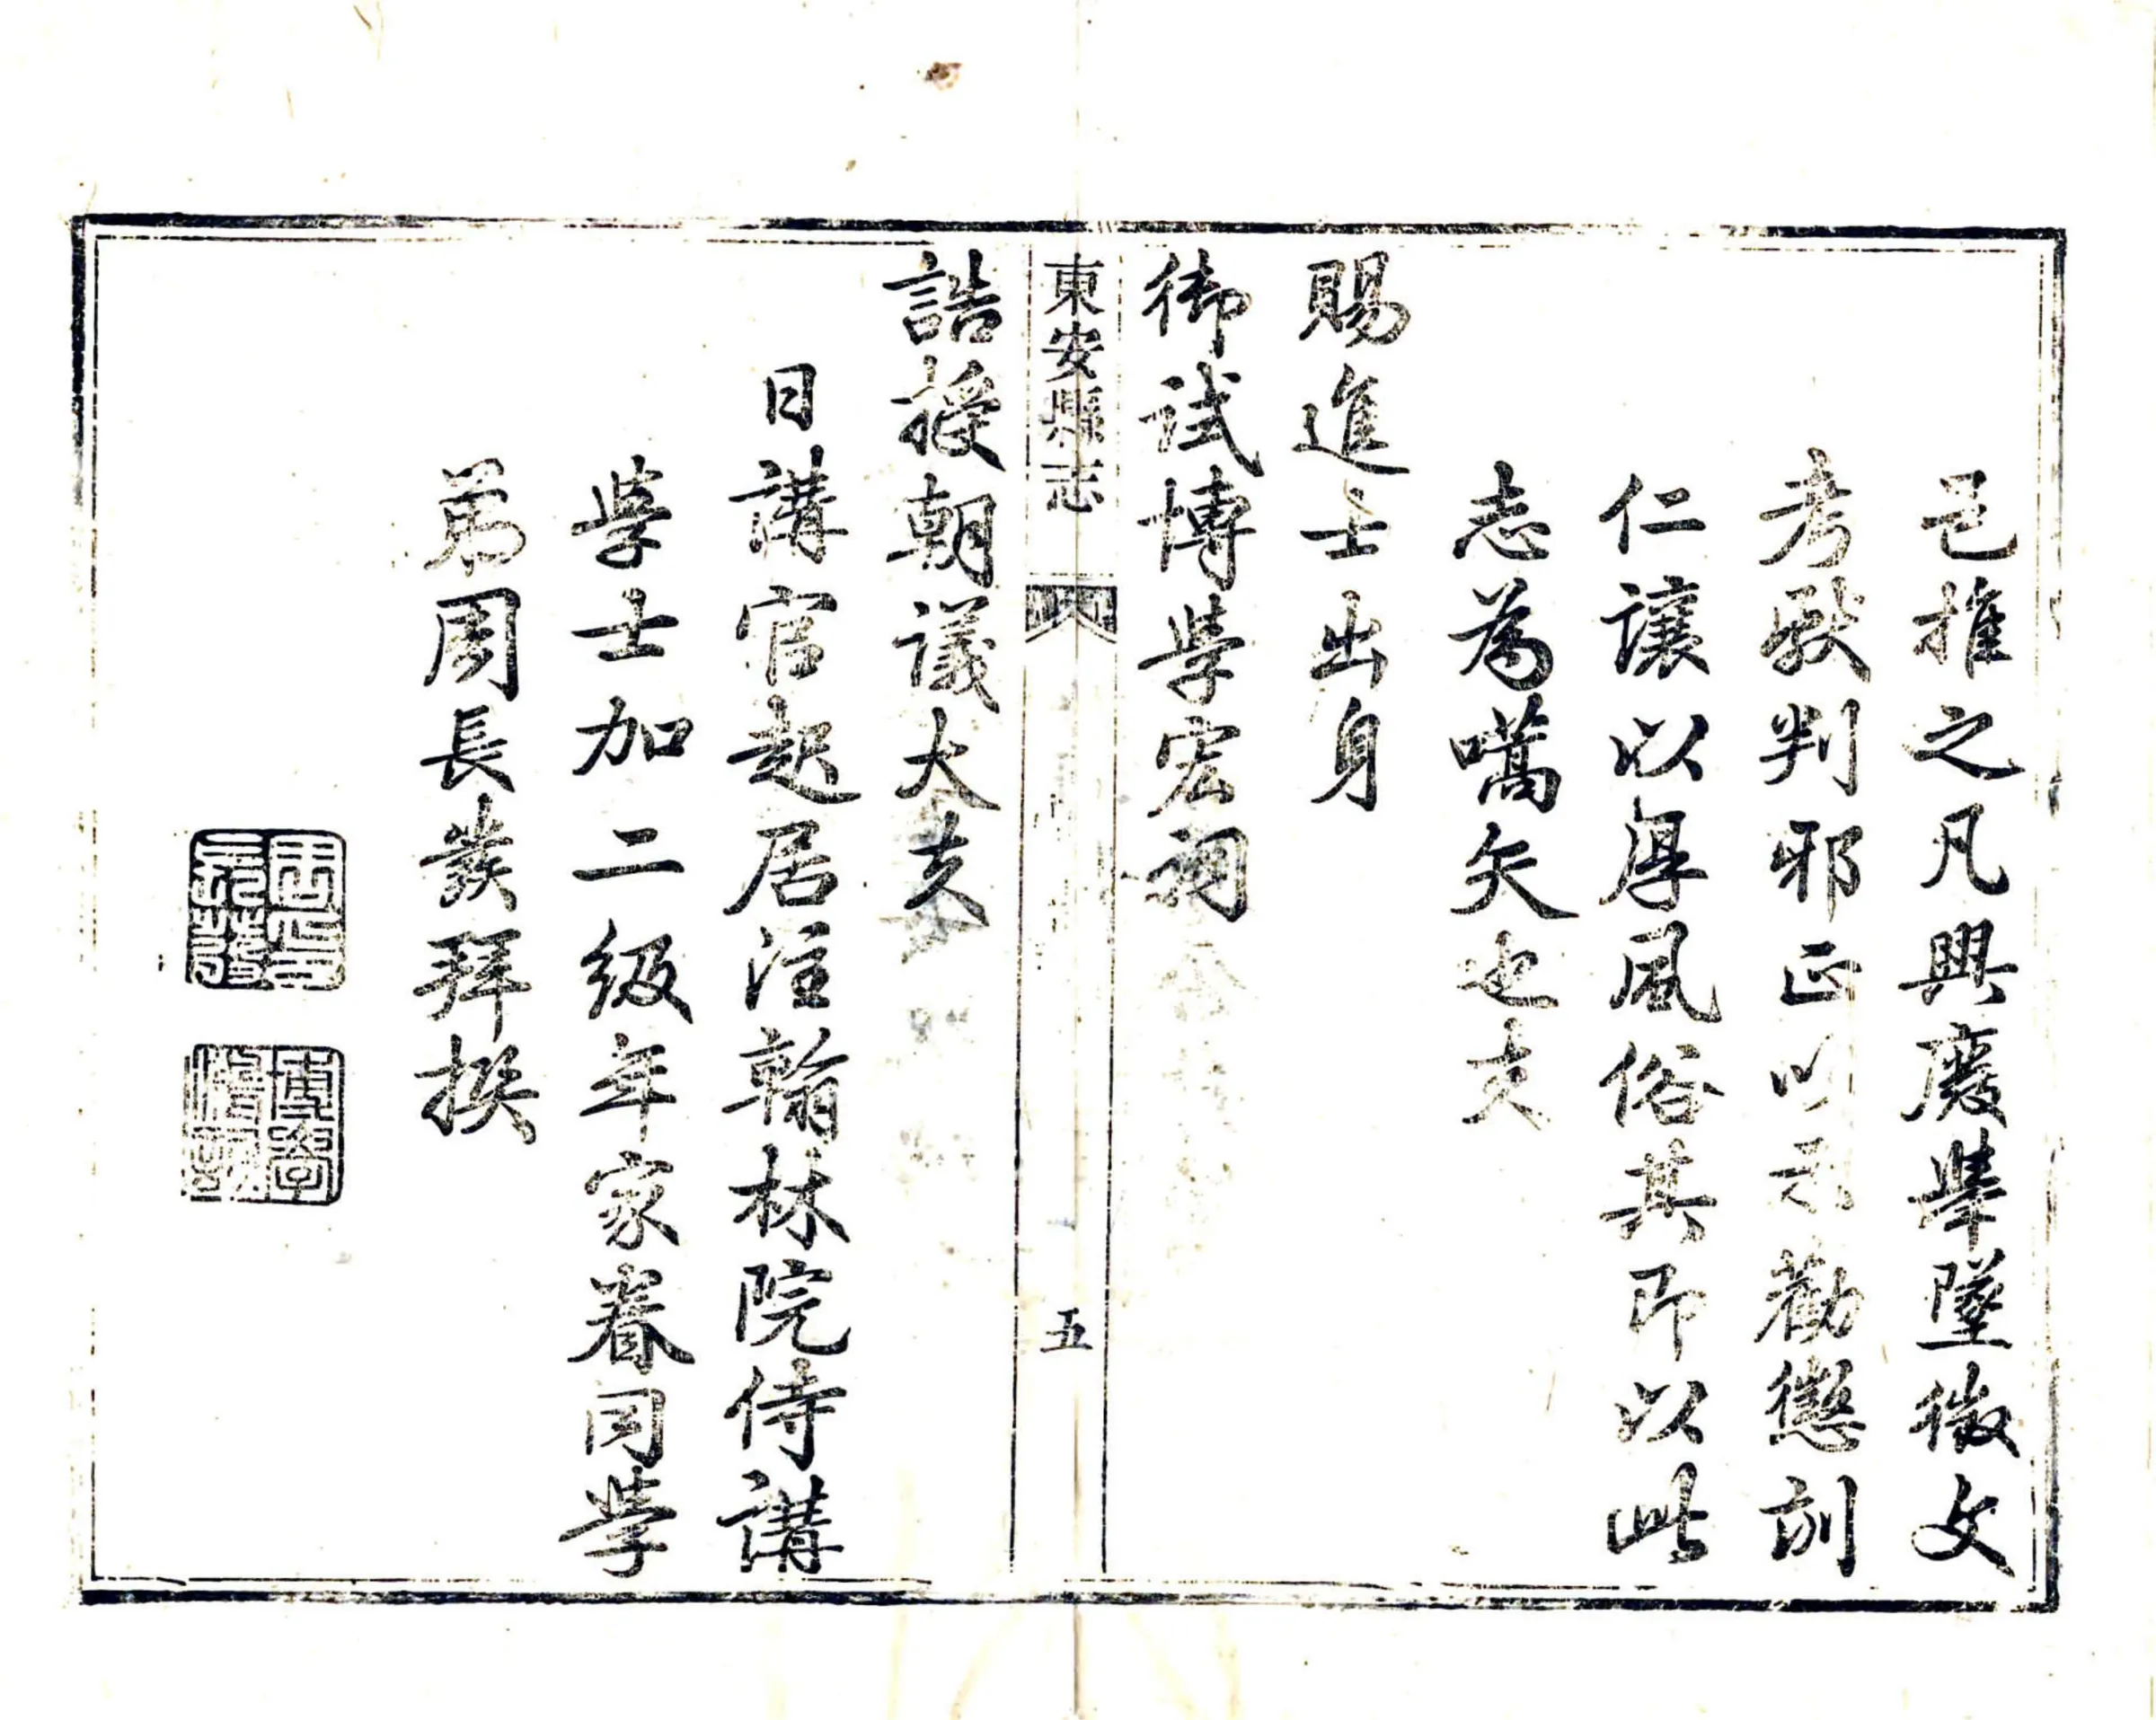 邑推之凡興廢舉墜徵文
考獻判邪正以示勸懲訓
仁讓以厚風俗其即以此
志為嚆矢也夫
賜進士出身
御試博學宏詞
東安縣志
五
誥授朝議大夫
日講官起居注翰林院侍講
學士加二級年家眷同學
弟周長發拜撰
周印長發
博學鴻詞